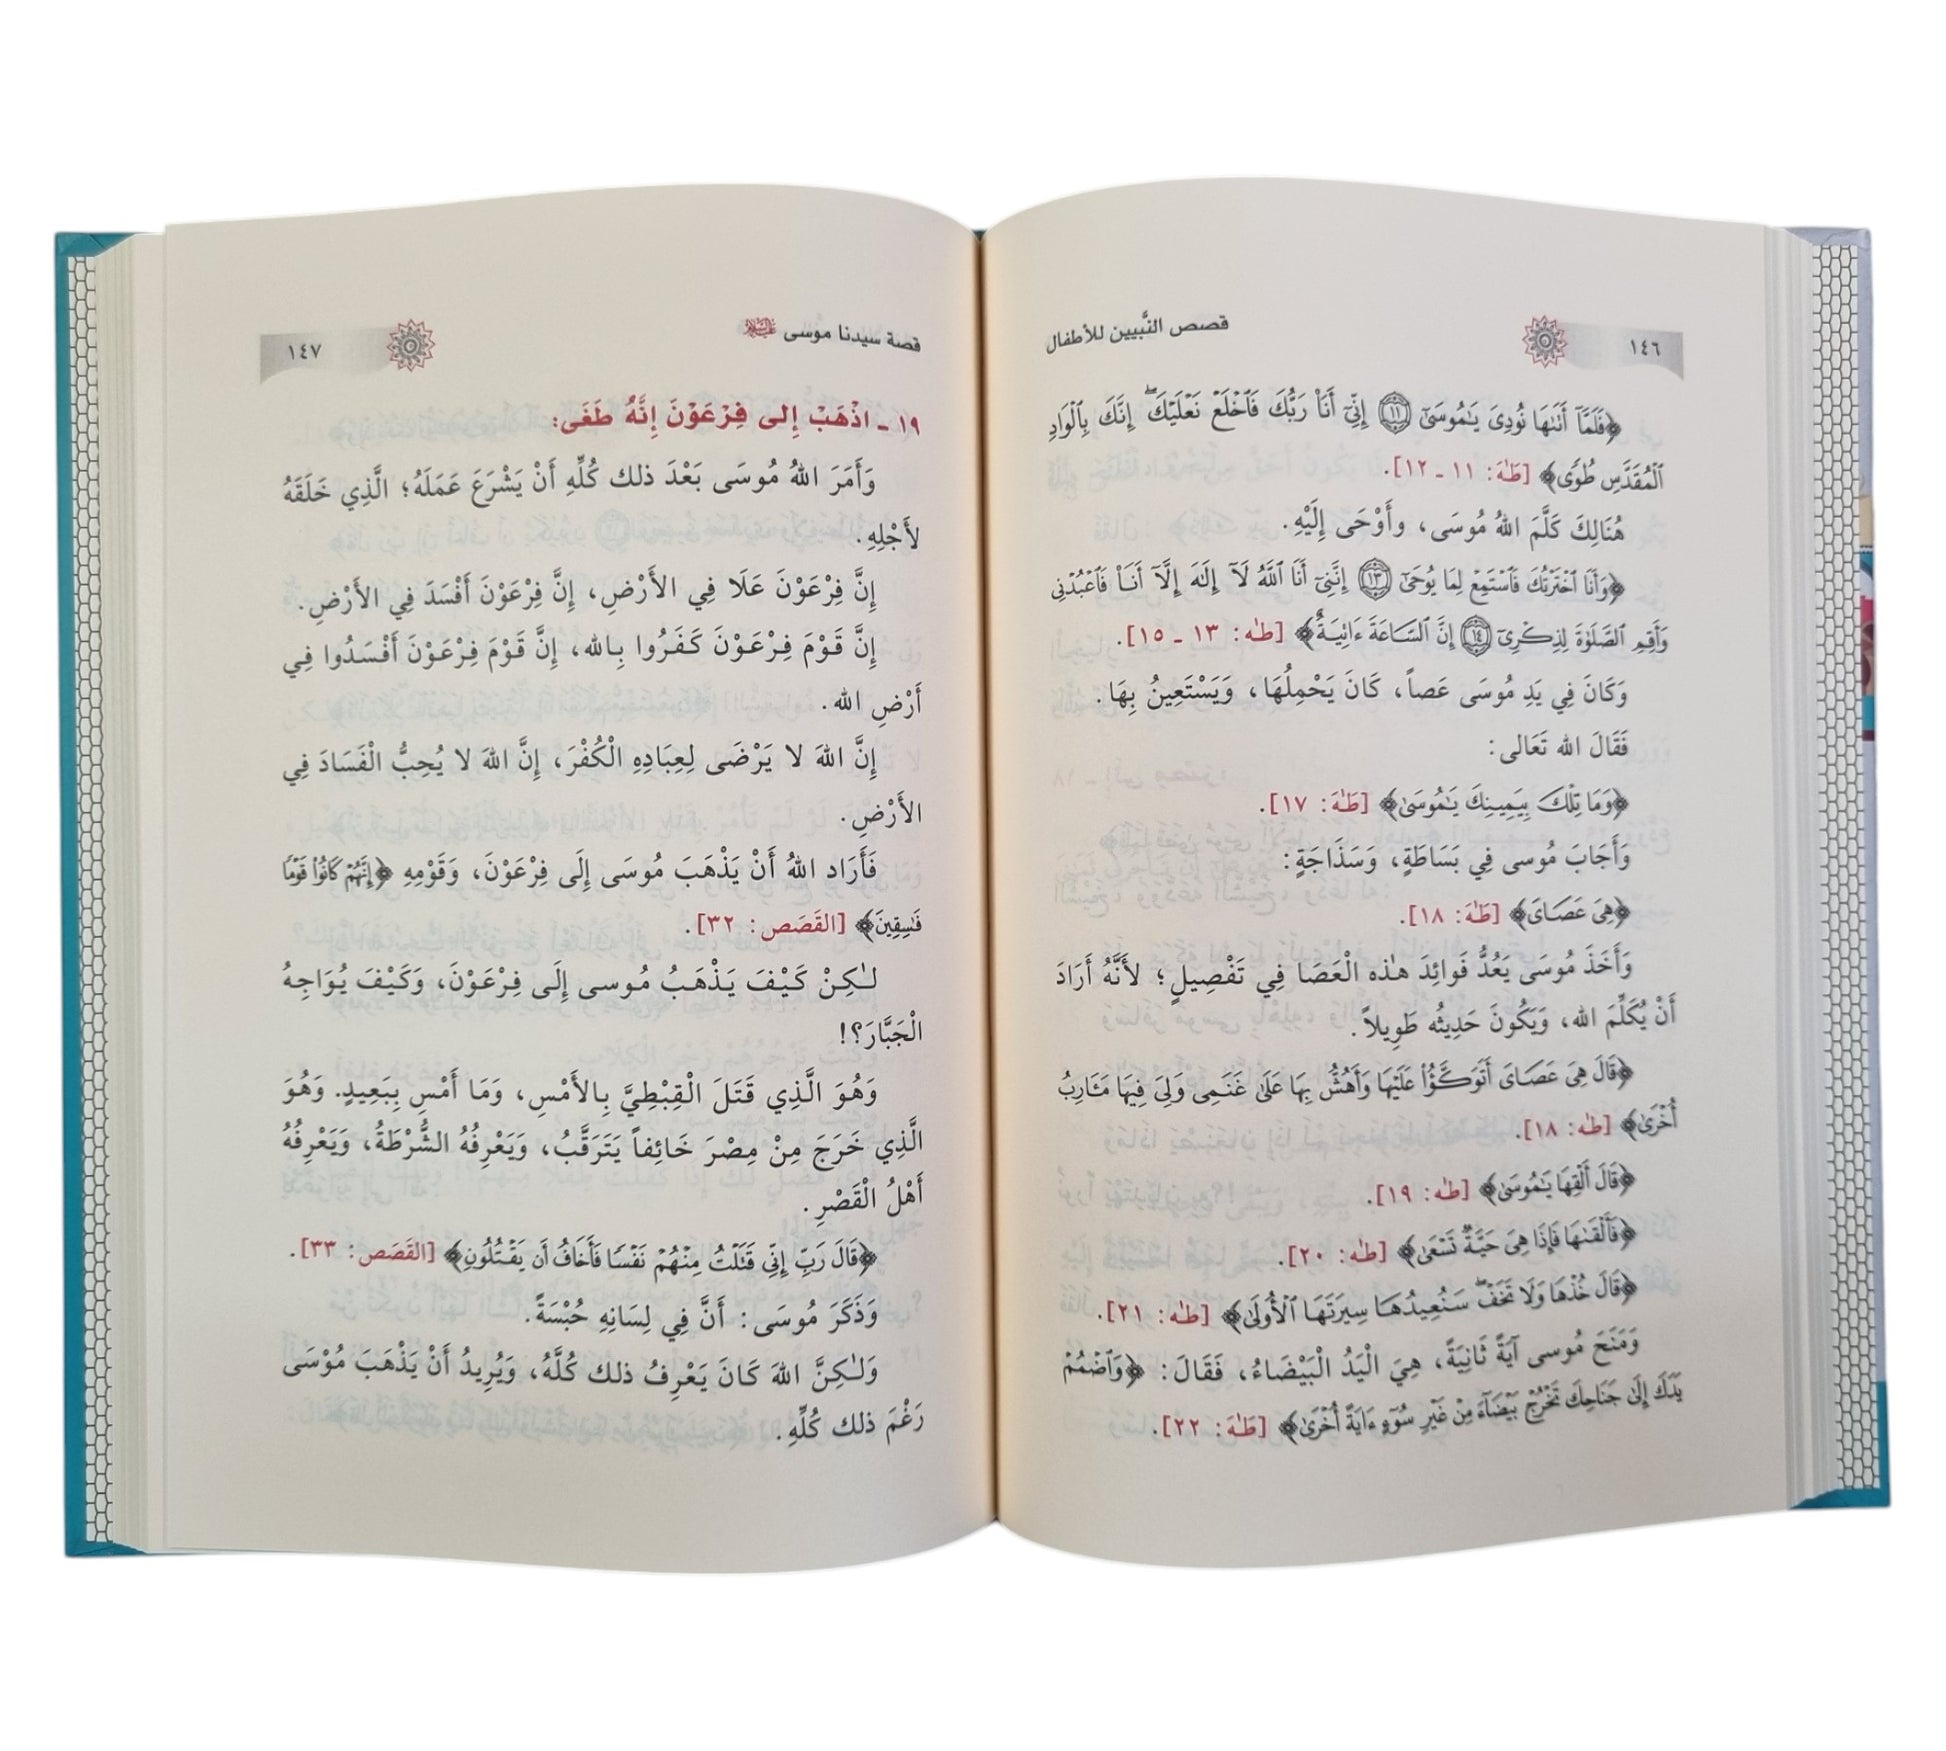 ١٤٦
قصص النَّبيين للأطفال
﴿فَلَمَّآ أَتَىٰهَا نُودِىَ يَـٰمُوسَىٰٓ ۝١١ إِنِّىٓ أَنَا۠ رَبُّكَ فَٱخْلَعْ نَعْلَيْكَ ۖ إِنَّكَ بِٱلْوَادِ
ٱلْمُقَدَّسِ طُوًى﴾ [طَـٰهَ: ١١ ـ ١٢].
هُنَالِكَ كَلَّمَ اللهُ مُوسَى، وأَوْحَى إِلَيْهِ.
﴿وَأَنَا ٱخْتَرْتُكَ فَٱسْتَمِعْ لِمَا يُوحَىٰٓ ۝١٣ إِنَّنِىٓ أَنَا ٱللَّهُ لَآ إِلَـٰهَ إِلَّآ أَنَا۠ فَٱعْبُدْنِى
وَأَقِمِ ٱلصَّلَوٰةَ لِذِكْرِىٓ ۝١٤ إِنَّ ٱلسَّاعَةَ ءَاتِيَةٌ﴾ [طـٰه: ١٣ ـ ١٥].
وَكَانَ فِي يَدِ مُوسَى عَصاً، كَانَ يَحْمِلُهَا، وَيَسْتَعِينُ بِهَا.
فَقَالَ الله تَعَالى:
﴿وَمَا تِلْكَ بِيَمِينِكَ يَـٰمُوسَىٰ﴾ [طَـٰهَ: ١٧].
وَأَجَابَ مُوسى فِي بَسَاطَةٍ، وَسَذَاجَةٍ:
﴿هِىَ عَصَاىَ﴾ [طَـٰهَ: ١٨].
وَأَخَذَ مُوسَى يَعُدُّ فَوائِدَ هـٰذه الْعَصَا فِي تَفْصِيلٍ؛ لأَنَّهُ أَرَادَ
أَنْ يُكَلِّمَ الله، وَيَكُونَ حَدِيثُه طَوِيلاً.
﴿قَالَ هِىَ عَصَاىَ أَتَوَكَّؤُا۟ عَلَيْهَا وَأَهُشُّ بِهَا عَلَىٰ غَنَمِى وَلِىَ فِيهَا مَـَٔارِبُ
أُخْرَىٰ﴾ [طـٰه: ١٨].
﴿قَالَ أَلْقِهَا يَـٰمُوسَىٰ﴾ [طـٰه: ١٩].
﴿فَأَلْقَىٰهَا فَإِذَا هِىَ حَيَّةٌ تَسْعَىٰ﴾ [طـٰه: ٢٠].
﴿قَالَ خُذْهَا وَلَا تَخَفْ ۖ سَنُعِيدُهَا سِيرَتَهَا ٱلْأُولَىٰ﴾ [طـٰه: ٢١].
وَمَنَحَ مُوسى آيَةً ثَانِيَةً، هِيَ الْيَدُ الْبَيْضَاءُ، فَقَالَ: ﴿وَٱضْمُمْ
يَدَكَ إِلَىٰ جَنَاحِكَ تَخْرُجْ بَيْضَآءَ مِنْ غَيْرِ سُوٓءٍ ءَايَةً أُخْرَىٰ﴾ [طَـٰهَ: ٢٢].
قصة سيدنا موسى عليه السلام
١٤٧
١٩ ـ اذْهَبْ إِلى فِرْعَوْنَ إِنَّهُ طَغَى:
وَأَمَرَ اللهُ مُوسَى بَعْدَ ذلك كُلِّهِ أَنْ يَشْرَعَ عَمَلَهُ؛ الَّذِي خَلَقَهُ
لأَجْلِهِ.
إِنَّ فِرْعَوْنَ عَلَا فِي الأَرْضِ، إِنَّ فِرْعَوْنَ أَفْسَدَ فِي الأَرْضِ.
إِنَّ قَوْمَ فِرْعَوْنَ كَفَرُوا بِالله، إِنَّ قَوْمَ فِرْعَوْنَ أَفْسَدُوا فِي
أَرْضِ الله.
إِنَّ اللهَ لا يَرْضَى لِعِبَادِهِ الْكُفْرَ، إِنَّ اللهَ لا يُحِبُّ الْفَسَادَ فِي
الأَرْضِ.
فَأَرَاد اللهُ أَنْ يَذْهَبَ مُوسَى إِلَى فِرْعَوْنَ، وَقَوْمِهِ ﴿إِنَّهُمْ كَانُوا۟ قَوْمًا
فَـٰسِقِينَ﴾ [القَصَص: ٣٢].
لـٰكِنْ كَيْفَ يَذْهَبُ مُوسى إِلَى فِرْعَوْنَ، وَكَيْفَ يُوَاجِهُ
الْجَبَّارَ؟!
وَهُوَ الَّذِي قَتَلَ الْقِبْطِيَّ بِالأَمْسِ، وَمَا أَمْسِ بِبَعِيدٍ. وَهُوَ
الَّذِي خَرَجَ مِنْ مِصْرَ خَائِفاً يَتَرَقَّبُ، وَيَعْرِفُهُ الشُّرْطَةُ، وَيَعْرِفُهُ
أَهْلُ الْقَصْرِ.
﴿قَالَ رَبِّ إِنِّى قَتَلْتُ مِنْهُمْ نَفْسًا فَأَخَافُ أَن يَقْتُلُونِ﴾ [القَصَص: ٣٣].
وَذَكَرَ مُوسَى: أَنَّ فِي لِسَانِهِ حُبْسَةً.
وَلـٰكِنَّ اللهَ كَانَ يَعْرِفُ ذلك كُلَّهُ، وَيُرِيدُ أَنْ يَذْهَبَ مُوْسَى
رَغْمَ ذلك كُلِّهِ.